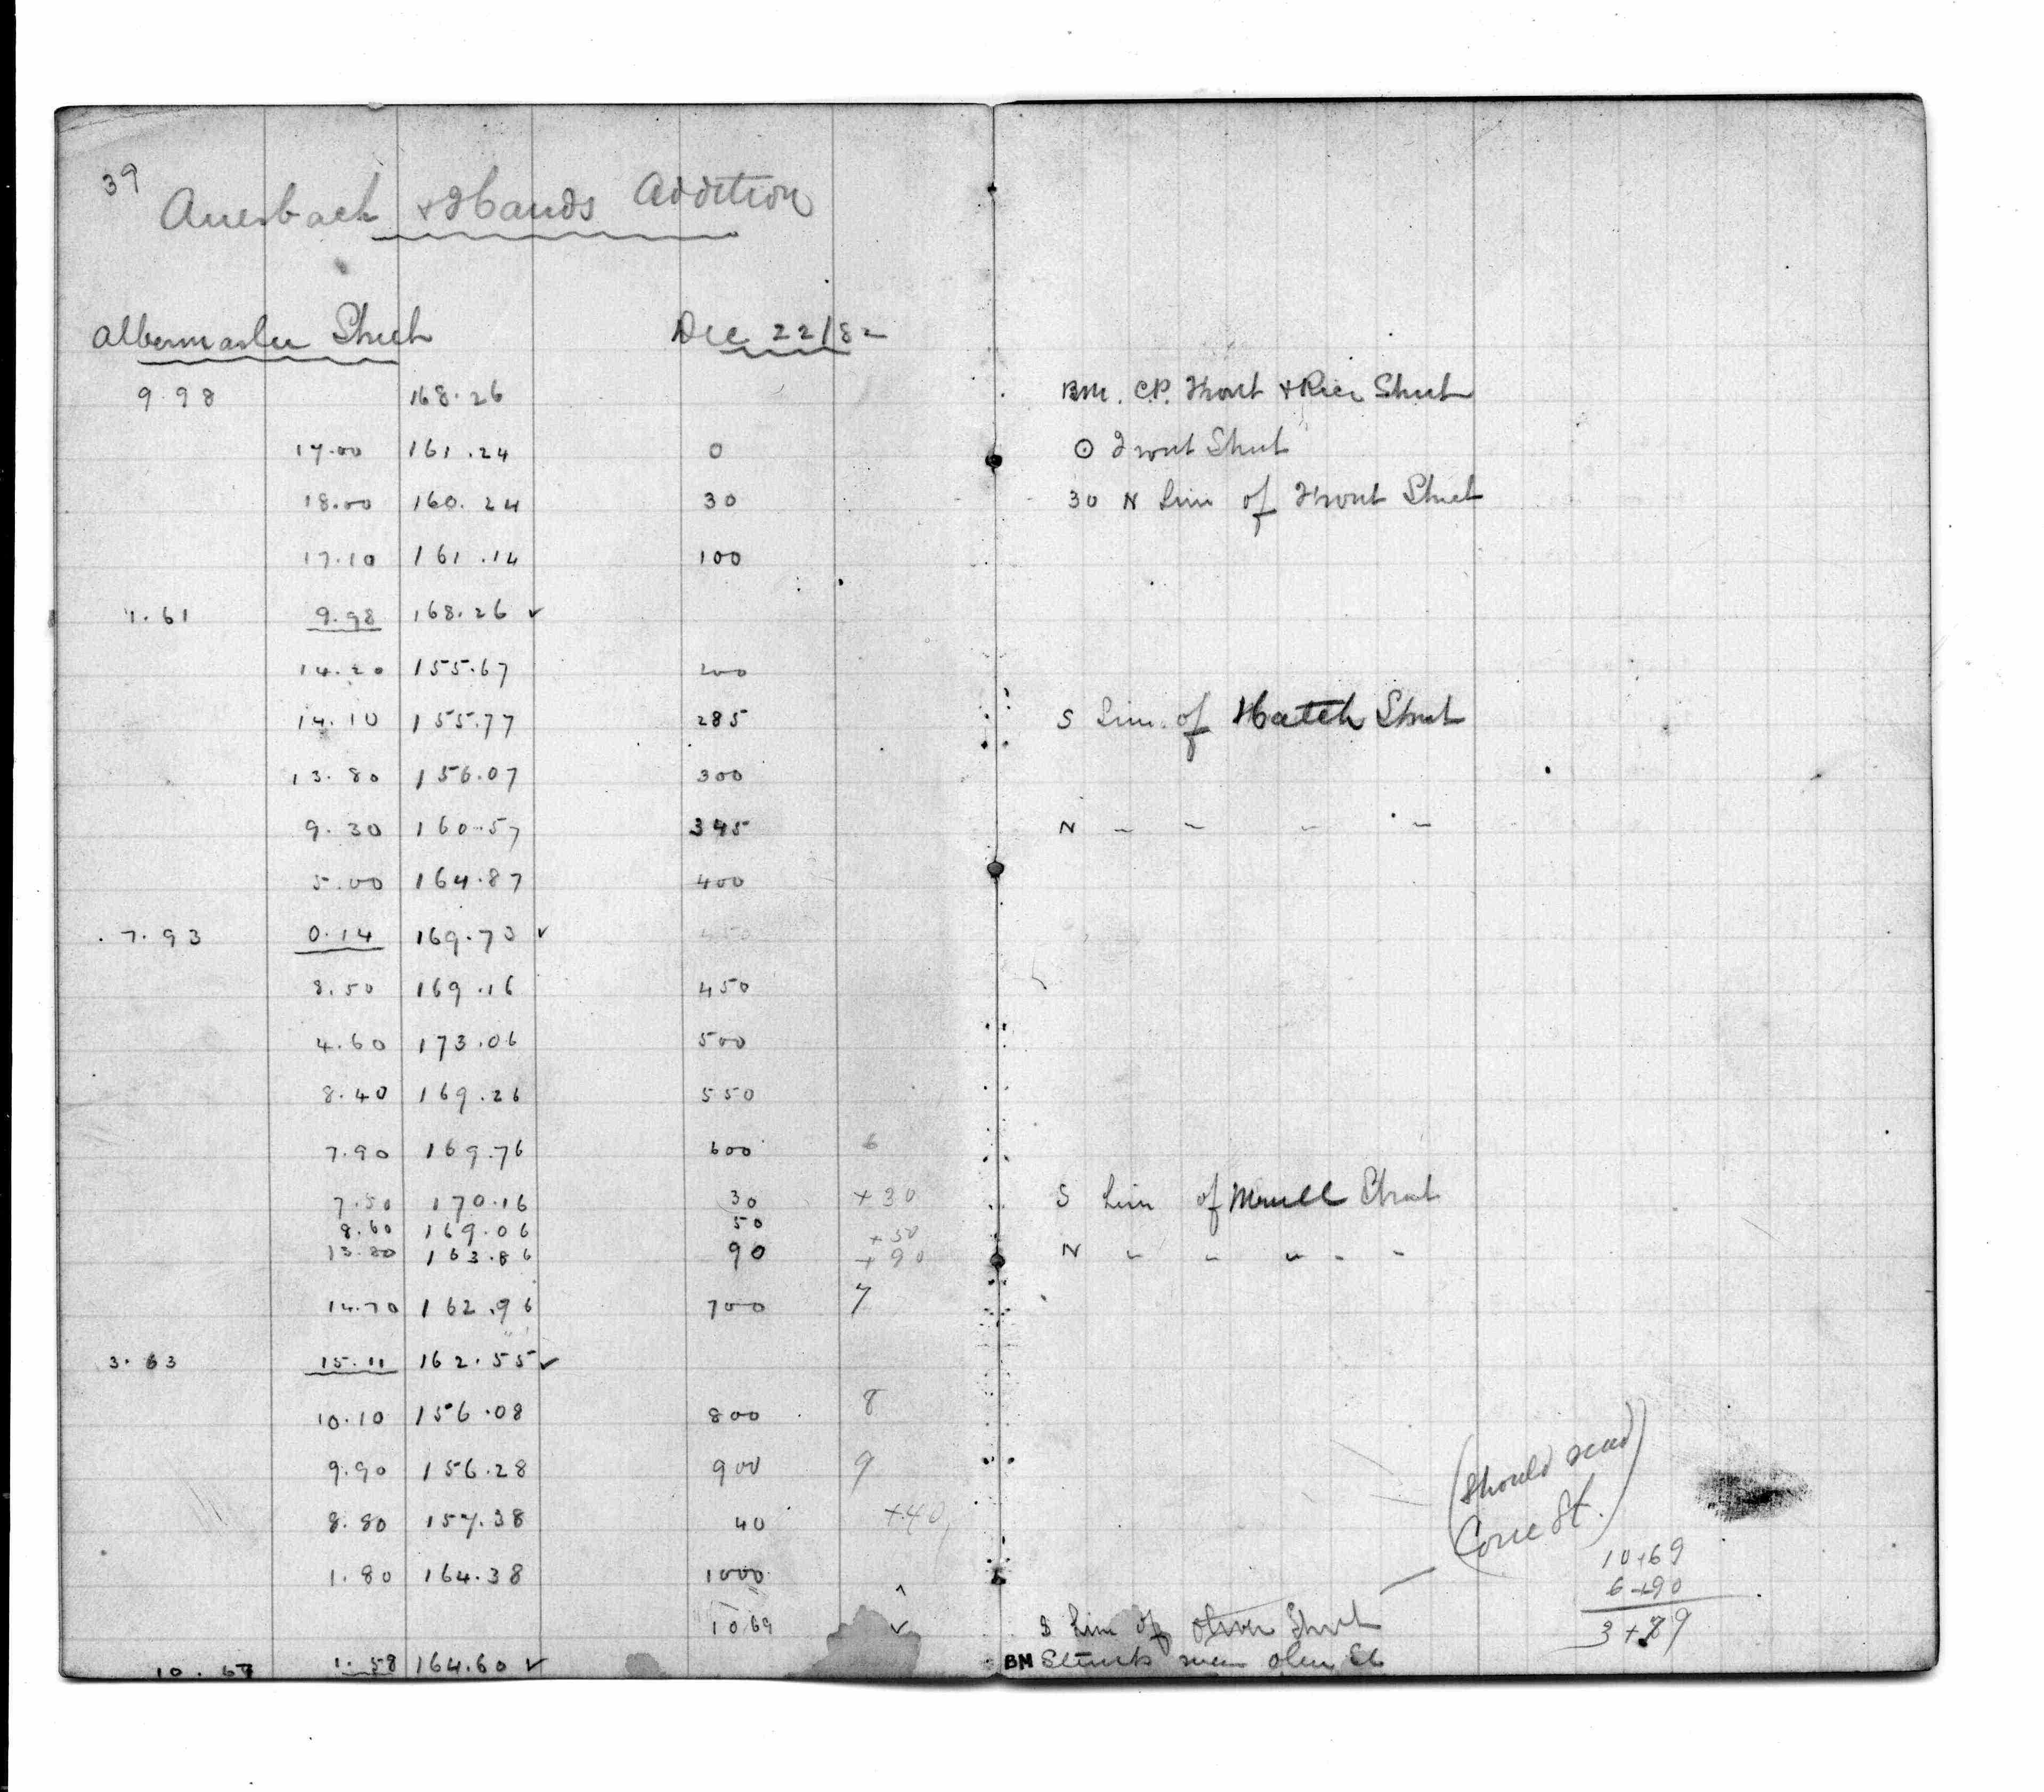 39
Auerbach & Hands Addition
Albermarlee Street Dec 22/82
9.98 168.26 BM. CP. Front & Rice Street
17.00 161.24 0 ⊙ Front Street
18.00 160.24 30 30 N Line of Front Street
17.10 161.14 100
1.61 9.98 168.26 ✓
14.20 155.67 200
14.10 155.77 285 S Line of Hatch Street
13.80 156.07 300
9.30 160.57 345 N " " " "
5.00 164.87 400
7.93 0.14 169.73 ✓ 450
8.50 169.16 450
4.60 173.06 500
8.40 169.26 550
7.90 169.76 600 6
7.50 170.16 30 +30 S Line of Merrell Street
8.60 169.06 50 +50
13.80 163.86 90 +90 N " " " " "
14.70 162.96 700 7
3.63 15.11 162.55 ✓
10.10 156.08 800 8
9.90 156.28 900 9
8.80 157.38 40 +40
1.80 164.38 1000
(Should read
Corre St.)
10+69
6+90
3+79
1069 ✓ S Line of Oliver Street
10.67 1.58 164.60 ✓ BM St